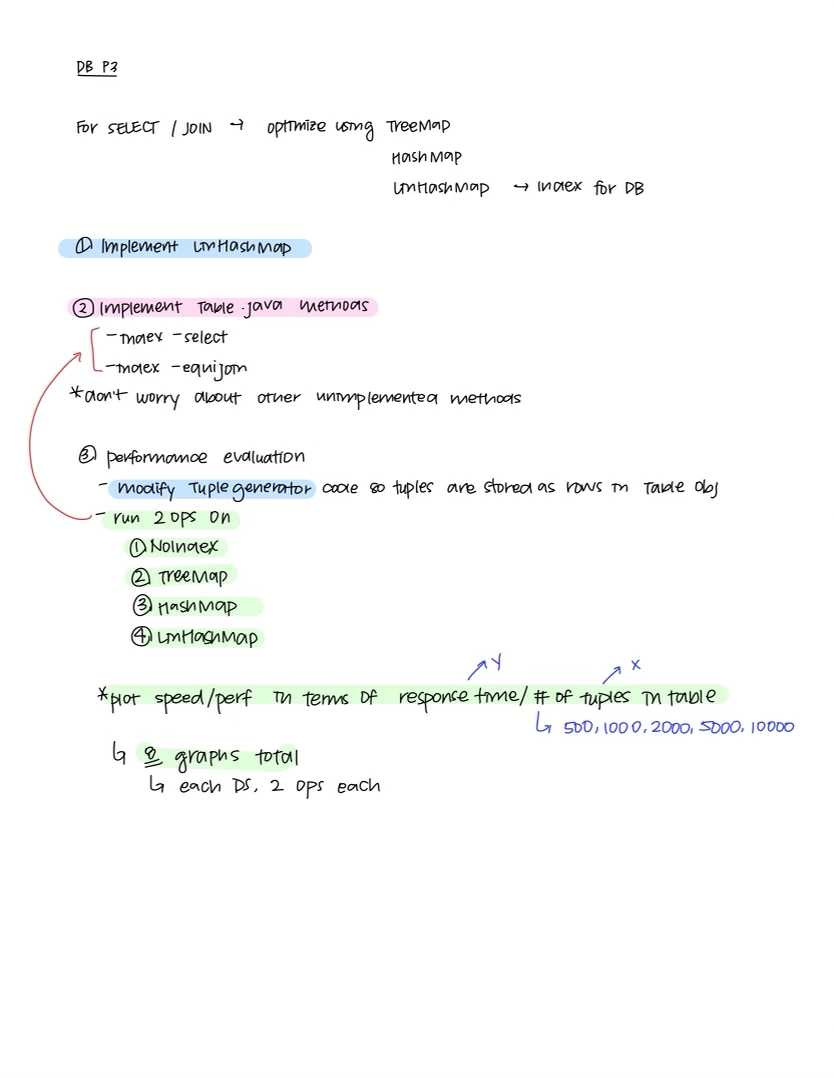 DB P3
For SELECT / JOIN → optimize using TreeMap
HashMap
LinHashMap → Index for DB
① Implement LinHashMap
② Implement Table.java methods
- index - select
- index - equijoin
*don't worry about other unimplemented methods
③ performance evaluation
- modify Tuple generator code so tuples are stored as rows in Table Obj
- run 2 ops on
① NoIndex
② TreeMap
③ HashMap
④ LinHashMap
Y X
*plot speed/perf in terms of response time/ # of tuples in table
↳ 500, 1000, 2000, 5000, 10000
↳ 8 graphs total
↳ each DS, 2 ops each